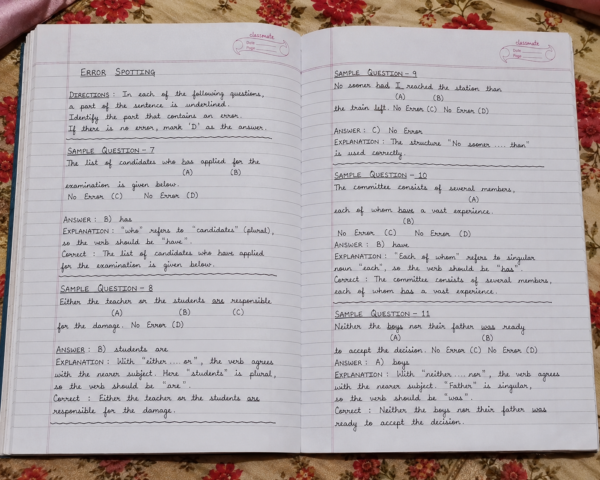 classmate
Date
Page
ERROR SPOTTING
DIRECTIONS : In each of the following questions,
a part of the sentence is underlined.
Identify the part that contains an error.
If there is no error, mark 'D' as the answer.
SAMPLE QUESTION - 7
The list of candidates who has applied for the
(A) (B)
examination is given below.
No Error (C) No Error (D)
ANSWER : B) has
EXPLANATION : "who" refers to "candidates" (plural),
so the verb should be "have".
Correct : The list of candidates who have applied
for the examination is given below.
SAMPLE QUESTION - 8
Either the teacher or the students are responsible
(A) (B) (C)
for the damage. No Error (D)
ANSWER : B) students are
EXPLANATION : With "either .... or", the verb agrees
with the nearer subject. Here "students" is plural,
so the verb should be "are".
Correct : Either the teacher or the students are
responsible for the damage.
classmate
Date
Page
SAMPLE QUESTION - 9
No sooner had I reached the station than
(A) (B)
the train left. No Error (C) No Error (D)
ANSWER : C) No Error
EXPLANATION : The structure "No sooner ..... than"
is used correctly.
SAMPLE QUESTION - 10
The committee consists of several members,
(A)
each of whom have a vast experience.
(B)
No Error (C) No Error (D)
ANSWER : B) have
EXPLANATION : "Each of whom" refers to singular
noun "each", so the verb should be "has".
Correct : The committee consists of several members,
each of whom has a vast experience.
SAMPLE QUESTION - 11
Neither the boys nor their father was ready
(A) (B)
to accept the decision. No Error (C) No Error (D)
ANSWER : A) boys
EXPLANATION : With "neither .... nor", the verb agrees
with the nearer subject. "Father" is singular,
so the verb should be "was".
Correct : Neither the boys nor their father was
ready to accept the decision.